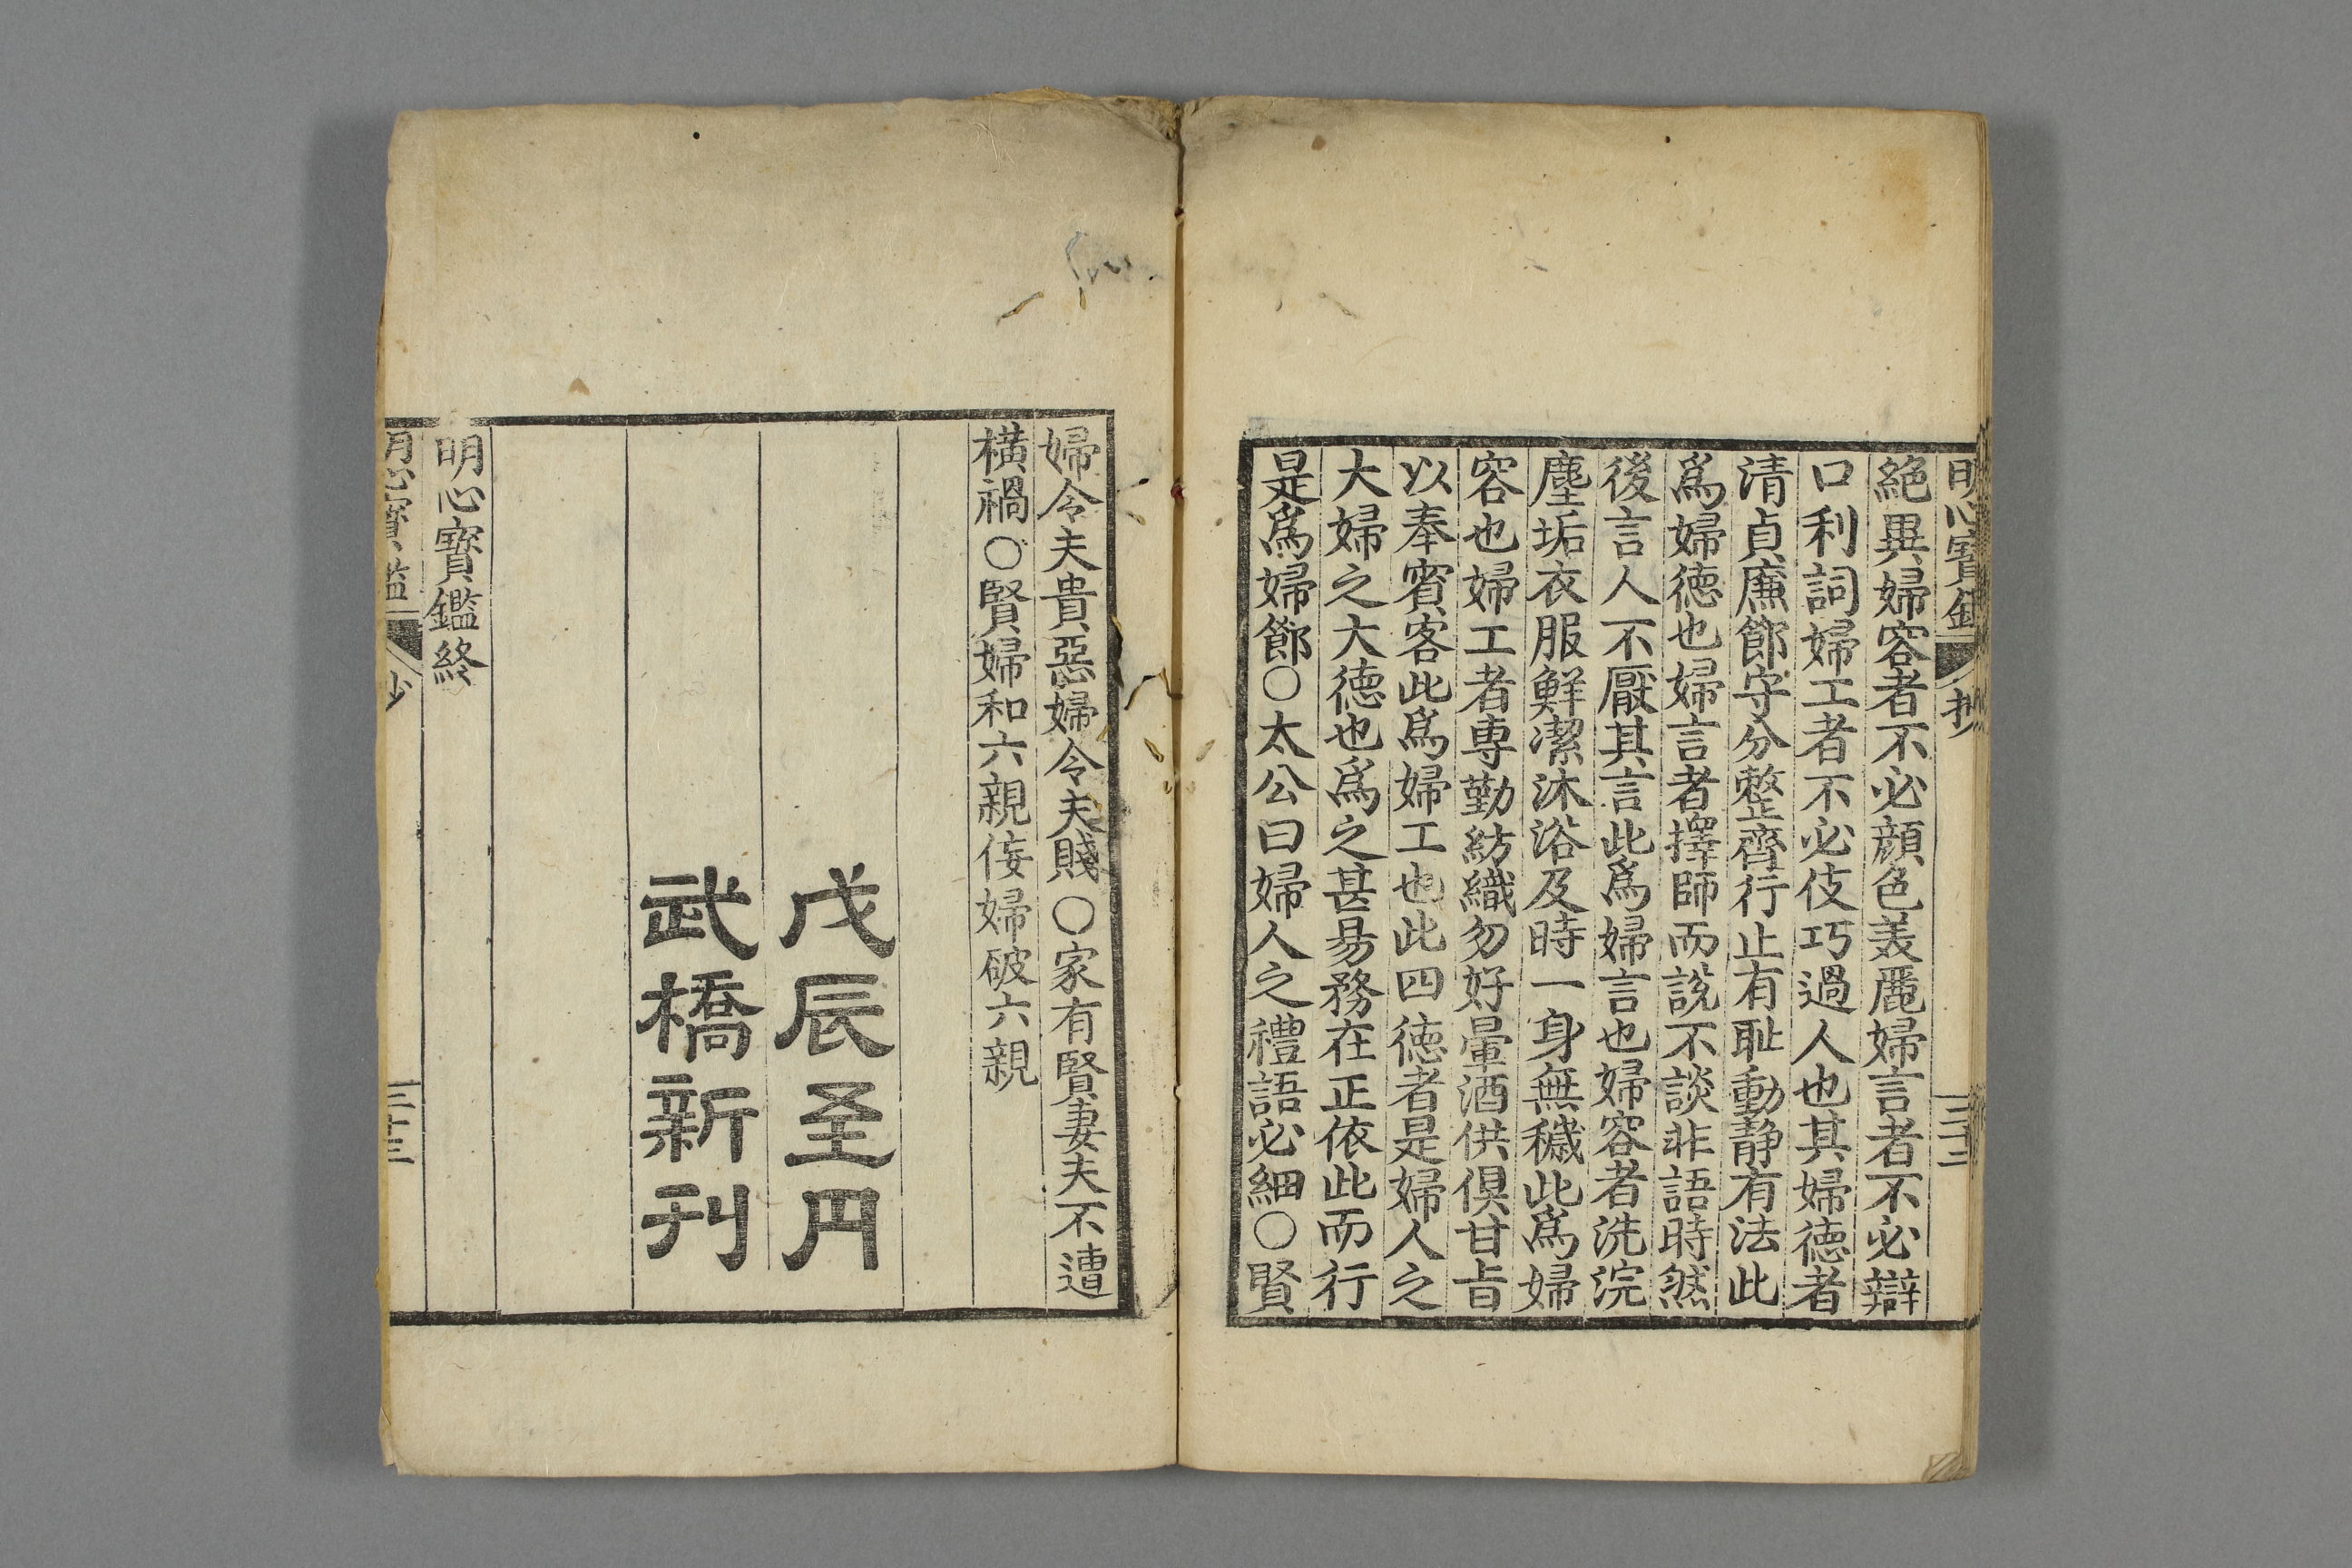 明心寶鑑 抄 三十二
絕異婦容者不必顔色美麗婦言者不必辯
口利詞婦工者不必伎巧過人也其婦德者
清貞廉節守分整齊行止有耻動靜有法此
爲婦德也婦言者擇師而說不談非語時然
後言人不厭其言此爲婦言也婦容者洗浣
塵垢衣服鮮潔沐浴及時一身無穢此爲婦
容也婦工者專勤紡織勿好暈酒供俱甘旨
以奉賓客此爲婦工也此四德者是婦人之
大婦之大德也爲之甚易務在正依此而行
是爲婦節○太公曰婦人之禮語必細○賢
婦令夫貴惡婦令夫賤○家有賢妻夫不遭
橫禍○賢婦和六親侫婦破六親
戊辰至月
武橋新刊
明心寶鑑終
明心寶鑑 抄 三十三